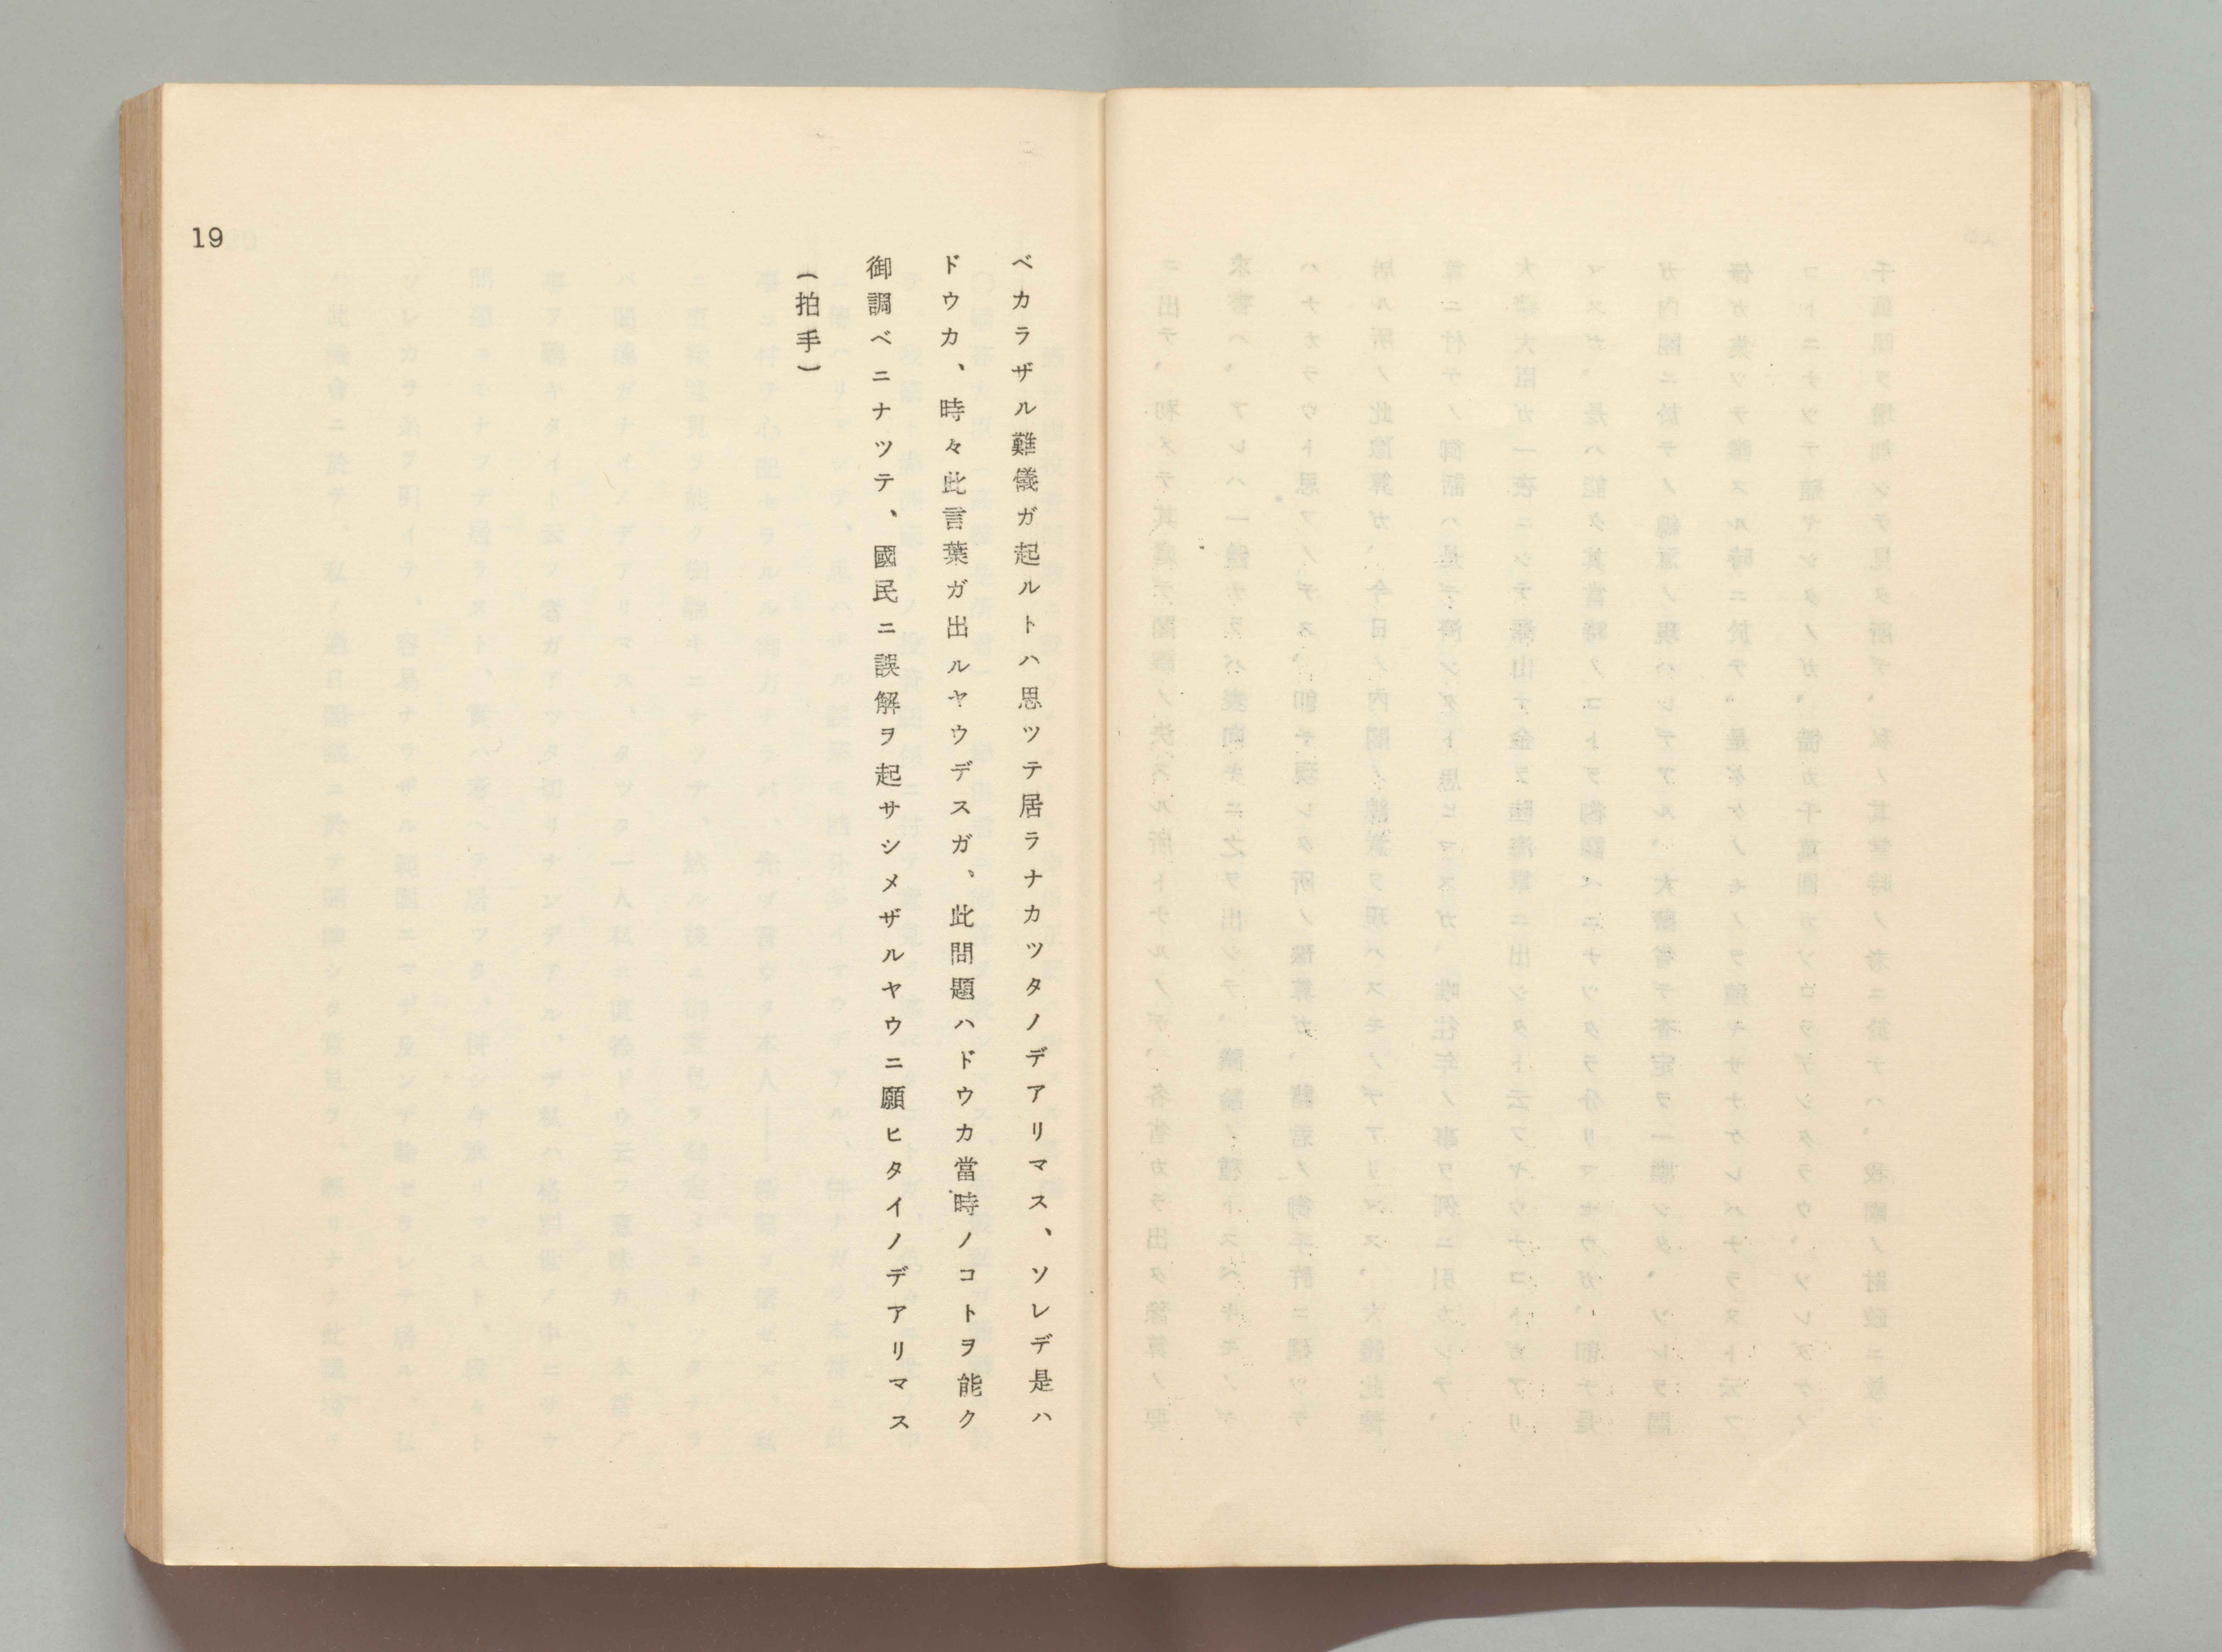 ベカラザル難儀ガ起ルトハ思ツテ居ラナカツタノデアリマス、ソレデ是ハ
ドウカ、時々此言葉ガ出ルヤウデスガ、此問題ハドウカ當時ノコトヲ能ク
御調ベニナツテ、國民ニ誤解ヲ起サシメザルヤウニ願ヒタイノデアリマス
(拍手)
19